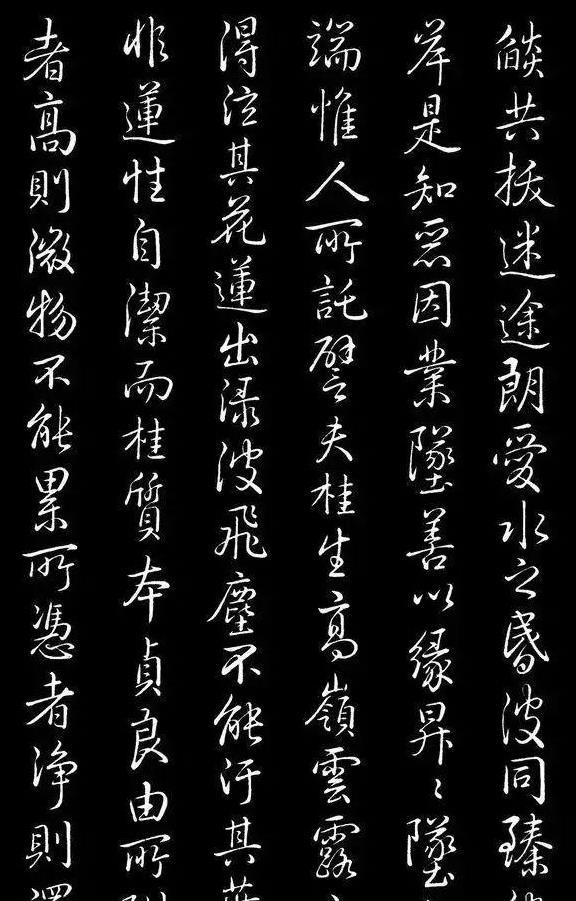 燄共拔迷途朗愛水之昏波同臻
岸是知惡因業墜善以緣昇〻墜
端惟人所託譬夫桂生高嶺雲露
得泣其花蓮出淥波飛塵不能汙其
非蓮性自潔而桂質本貞良由所
者高則微物不能累所憑者淨則